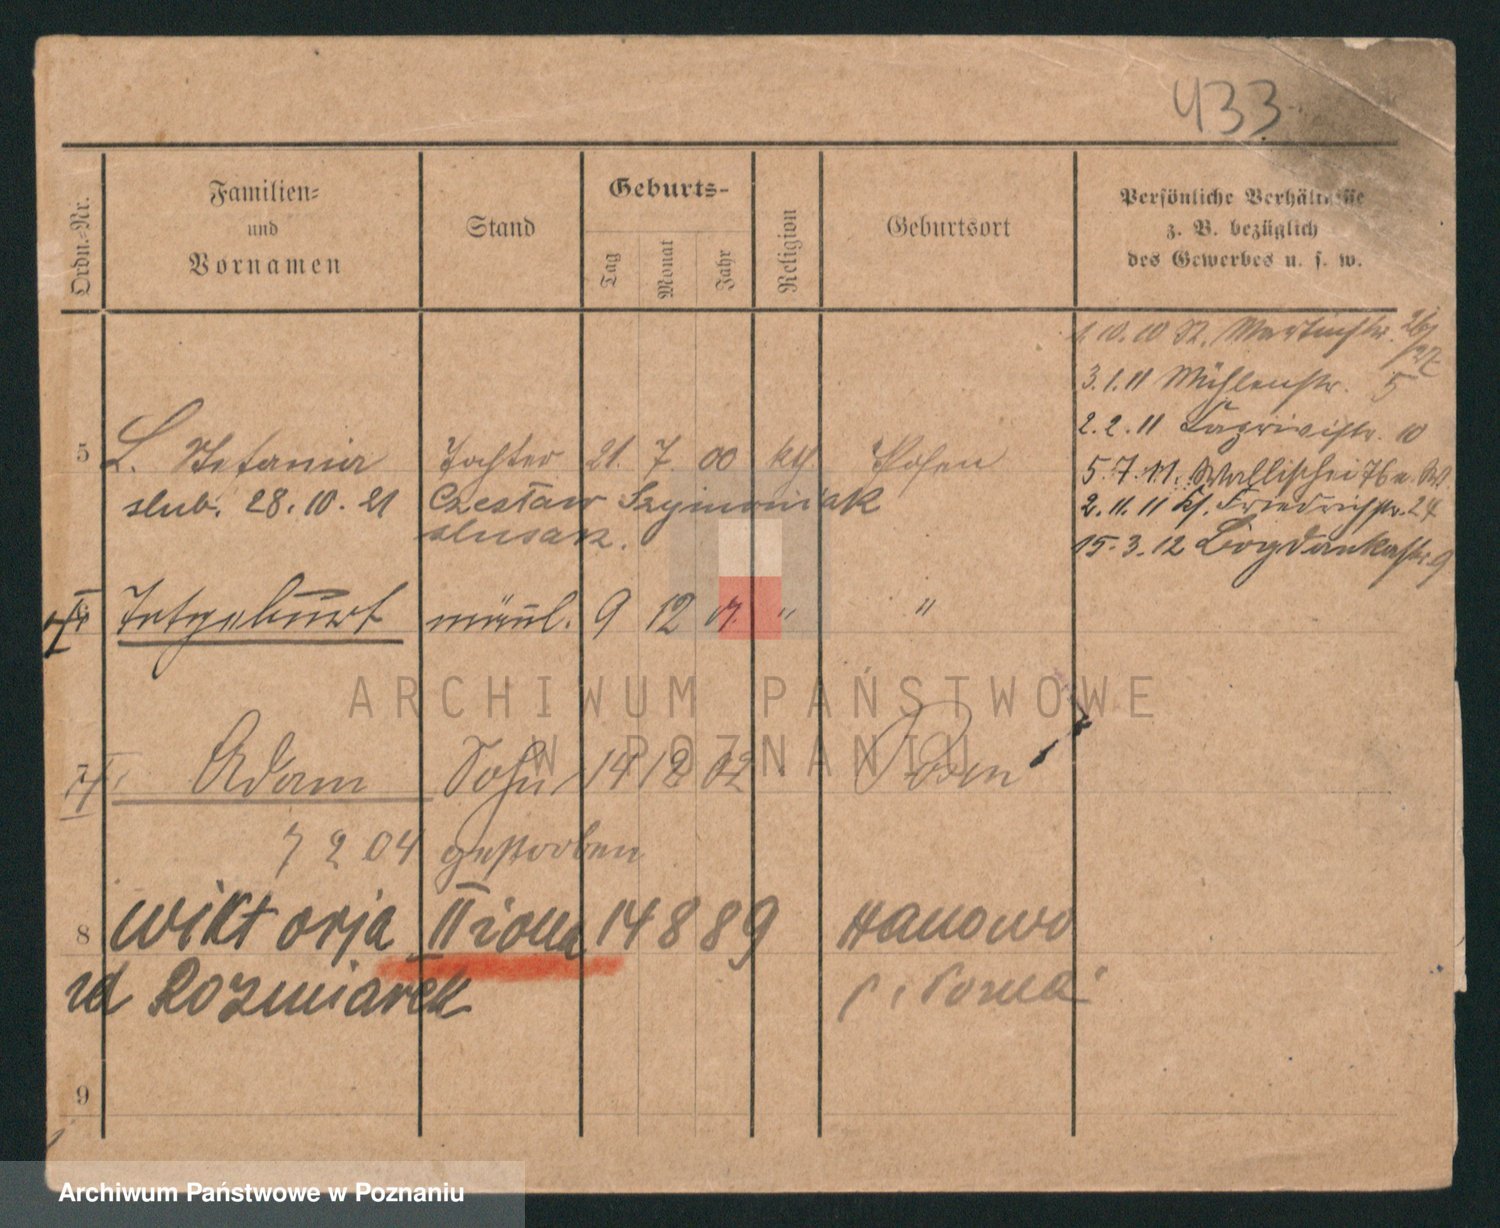 433
Ordn.-Nr.
Familien-
und
Vornamen
Stand
Geburts-
Tag
Monat
Jahr
Religion
Geburtsort
Persönliche Verhältnisse
z. B. bezüglich
des Gewerbes u. s. w.
1.10.10 St. Martinstr. 26/27
3.1.11 Mühlenstr. 5
2.2.11 Caprivistr. 10
5.7.11. Wallischei 76
2.11.11 Kl. Friedrichstr. 24
15.3.12 Bogdankastr. 9
5 L. Stefania Tochter 21. 7. 00 kth. Posen
slub. 28.10.21 Czesław Szymoniak
slusarz.
6 Totgeburt männl. 9 12 01. " "
7 Adam Sohn 14 12 02 Posen
7 2 04 gestorben
8 Wiktorja II żona 14 8 89 Hanowo
zd Rozmiarek p.
9
ARCHIWUM PAŃSTWOWE
W POZNANIU
Archiwum Państwowe w Poznaniu